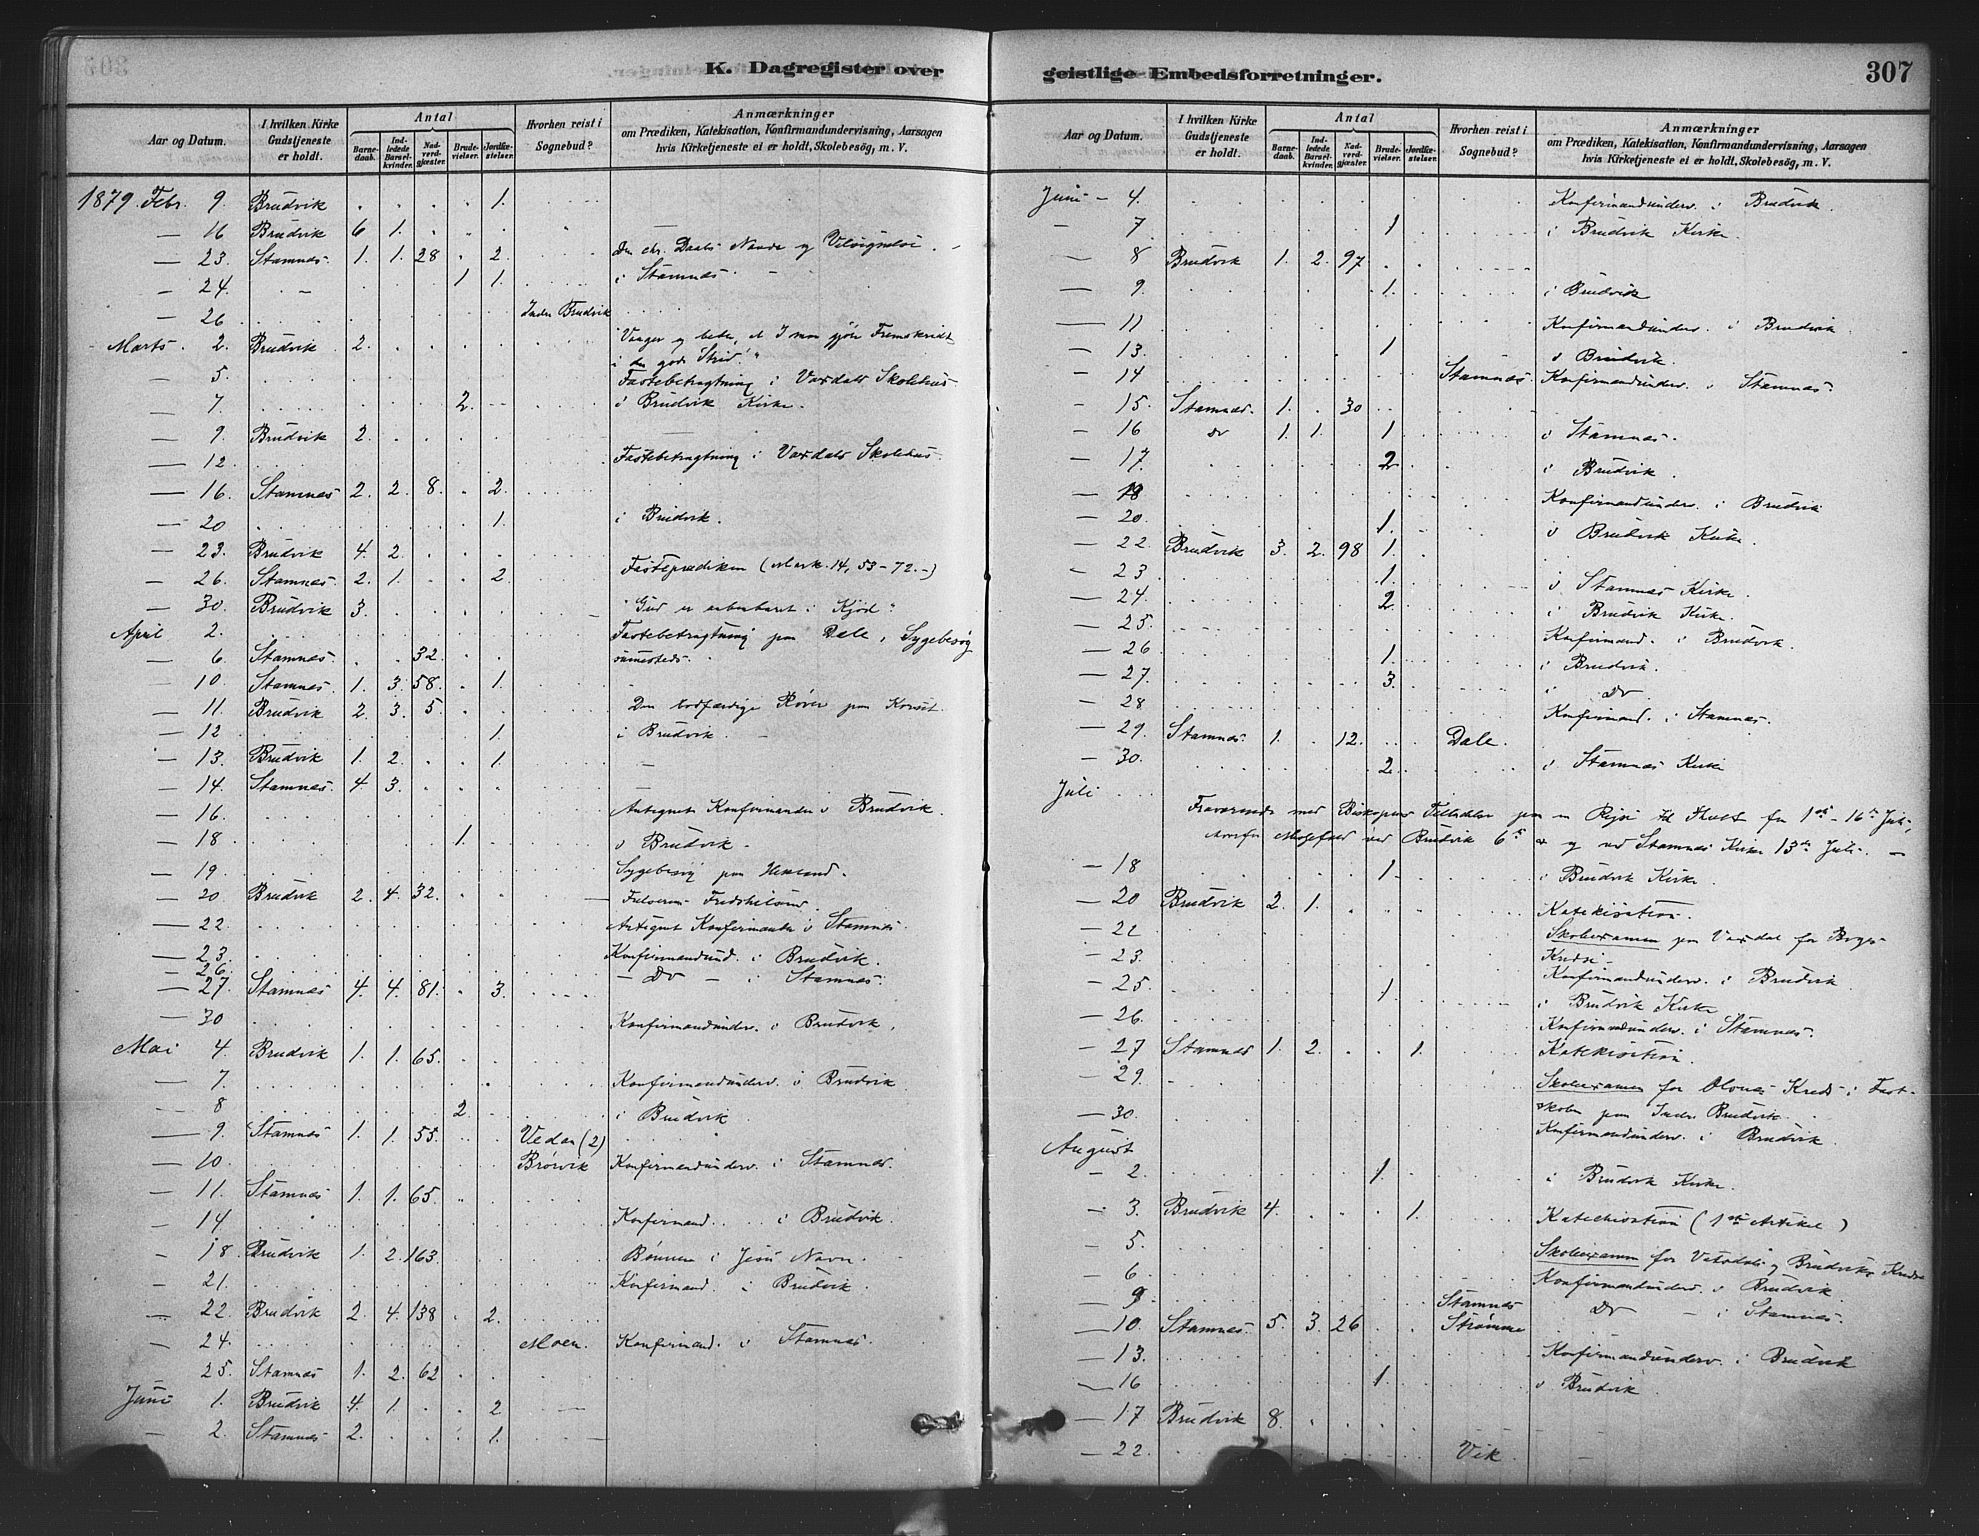 K. Dagregister over
Aar og Datum. I hvilken Kirke Gudstjeneste er holdt. Antal Barnedaab. Indledede Barselkvinder. Nadverdgjæster. Brudevielser. Jordfæstelser. Hvorhen reist i Sognebud? Anmærkninger om Prædiken, Katekisation, Konfirmandundervisning, Aarsagen hvis Kirketjeneste ei er holdt, Skolebesøg, m. V.
1879 Febr. 9. Brudvik 1.
16 Brudvik 6 1.
23. Stamnes. 1. 1. 28 2.
24. 1 1. i Stamnes.
26 Indre Brudvik
Marts. 2. Brudvik. 2.
5. Fastebetragtning i Vaxdals Skolehus
7. 2. i Brudvik Kirke.
9. Brudvik 2.
12. Fastebetragtning i Vaxdals Skolehus.
16. Stamnes 2. 2. 8. 2.
20 1. i Brudvik.
23. Brudvik 4. 2.
26. Stamnes. 2. 1. 2. Fasteprædiken (Mark. 14, 53-72.-)
30. Brudvik 3. "Gud er aabenbaret i Kjød"
April 2. Fastebetragtning paa Dale, Sygebesøg
6. Stamnes. 32. sammesteds.
10. Stamnes. 1. 3. 58. 1.
11. Brudvik 2. 3. 5. Den bodfærdige Røver paa Korset.
12 1. i Brudvik.
13. Brudvik 1. 2. 1.
14. Stamnes. 4 3.
16. Antegnet Konfirmander i Brudvik.
18 1. i Brudvik.
19. Sygebesøg paa
20 Brudvik 2. 4. 32.
22. Antegnet Konfirmander i Stamnes.
23. Konfirmandund. i Brudvik.
26. Do i Stamnes.
27. Stamnes 4. 4. 81. 3.
30 Konfirmandunderv. i Brudvik.
Mai 4. Brudvik 1. 1. 65.
7. Konfirmandunderv. i Brudvik
8 2. i Brudvik
9. Stamnes 1. 1. 55. Vedaa (2)
10. Brørvik Konfirmandunderv. i Stamnes.
11. Stamnes 1. 1. 65.
14. Konfirmand. i Brudvik.
18. Brudvik 1. 2. 163. Bønnen i Jesu Navn.
21. Konfirmand. i Brudvik
22 Brudvik 2. 4. 138 2.
24. Moen. Konfirmand. i Stamnes.
25. Stamnes 1. 2. 62
Juni 1. Brudvik 4. 1. 2
2. Stamnes 2. 1.
geistlige Embedsforretninger. 307
Aar og Datum. I hvilken Kirke Gudstjeneste er holdt. Antal Barnedaab. Indledede Barselkvinder. Nadverdgjæster. Brudevielser. Jordfæstelser. Hvorhen reist i Sognebud? Anmærkninger om Prædiken, Katekisation, Konfirmandundervisning, Aarsagen hvis Kirketjeneste ei er holdt, Skolebesøg, m. V.
Juni 4. Konfirmandunderv. i Brudvik.
7. 1 i Brudvik Kirke.
8 Brudvik 1. 2. 97
9. 1. i Brudvik
11 Konfirmandunderv. i Brudvik
13. 1 i Brudvik.
14 Stamnes. Konfirmandunderv. i Stamnes.
15. Stamnes. 1. 30
16 do 1. 1. 1 i Stamnes.
17. 2 i Brudvik.
18 Konfirmandunderv. i Brudvik
20. 1. i Brudvik Kirke.
22. Brudvik 3. 2. 98 1.
23 1. i Stamnes Kirke.
24. 2. i Brudvik Kirke.
25. Konfirmand. i Brudvik.
26 1. i Brudvik.
27. 3. i do
28 Konfirmand. i Stamnes.
29. Stamnes. 1. 12. Dale.
30. 2. i Stamnes Kirke
Juli Fraværende med Biskopens Tilladelse paa en Reise til fra 1ste - 16de Juli,
ved Brudvik 6te og ved Stamnes Kirke 13de Juli.
18 1. i Brudvik Kirke.
20 Brudvik 2. 1. Katekisation.
21 Skoleexamen paa Vaxdal for
23. Konfirmandunderv. i Brudvik.
25. 1 i Brudvik Kirke
26. Konfirmandunderv. i Stamnes.
27 Stamnes 1. 2. 1. Katekisation.
29. Skoleexamen for Kreds i Fast-
30. skolen paa Indre Brudvik.
Konfirmandunderv. i Brudvik.
August
2 1 i Brudvik Kirke.
3. Brudvik 4. 1. Katechisation (1ste Artikel)
5. Skoleexamen for og Brudviks Kredse
6. Konfirmandunderv. i Brudvik.
9 Stamnes Do i Stamnes.
10 Stamnes. 5. 3. 26 Strømme
13. Konfirmandunderv. i Brudvik
16 1. i Brudvik
17 Brudvik 8.
22. Vik